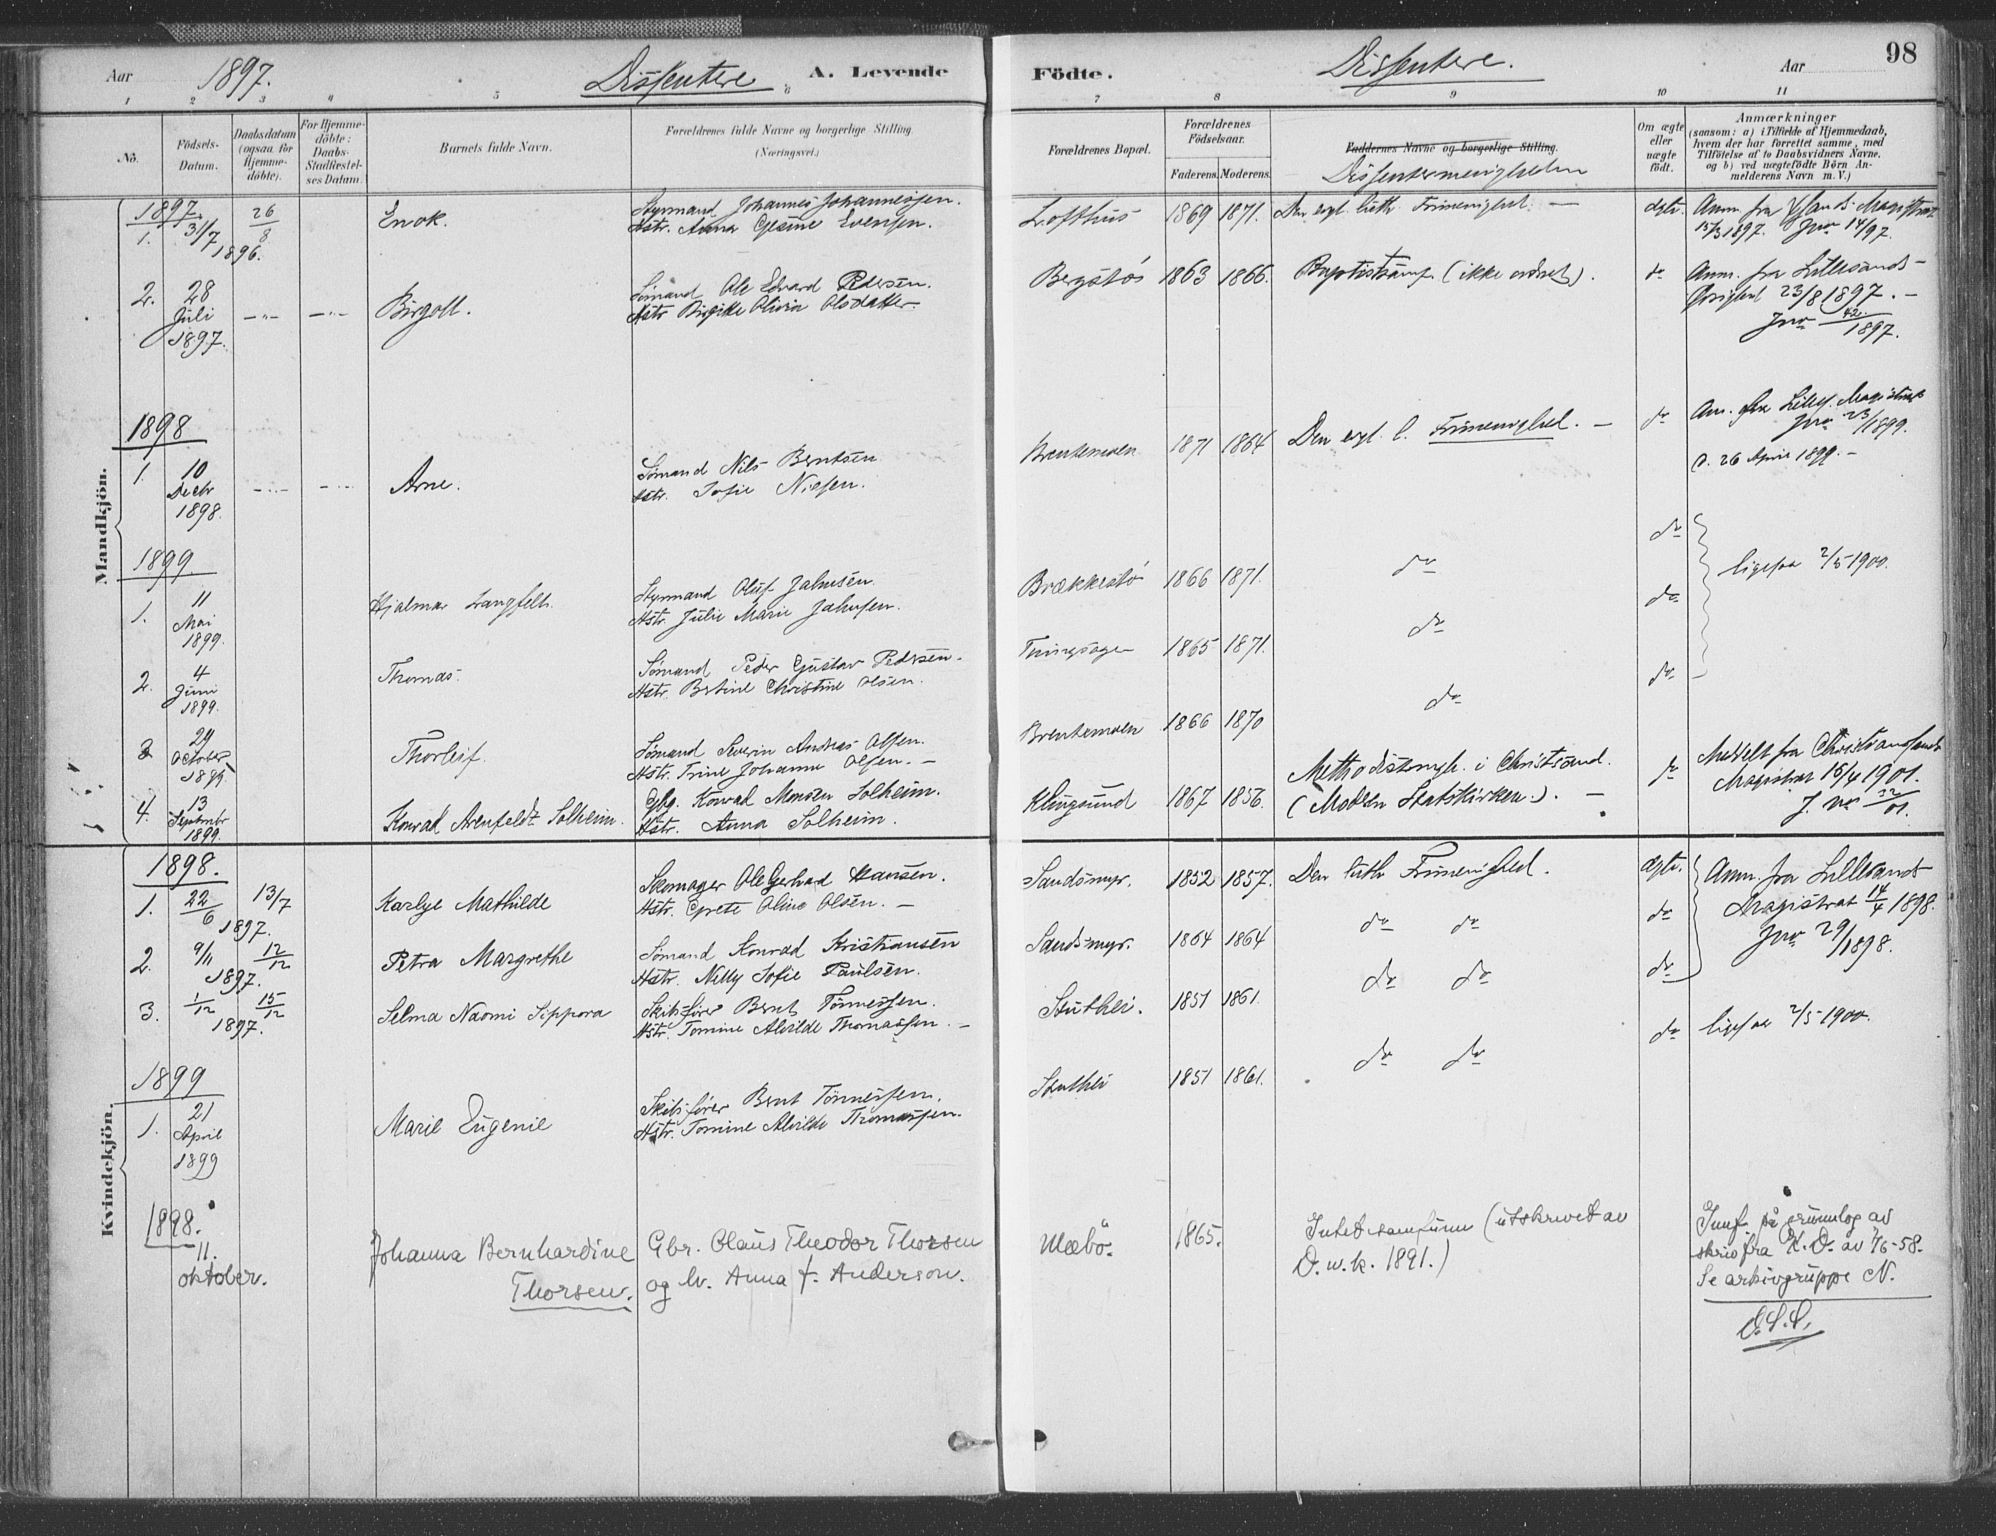 98
Aar 1897. Dissentere A. Levende
Födte. Dissentere. Aar
1 2 3 4 5 6
7 8 9 10 11
No.
Födsels-
Datum.
Daabsdatum
(ogsaa for
Hjemme-
döbte).
For Hjemme-
döbte:
Daabs-
Stadfæstel-
ses Datum.
Barnets fulde Navn.
Forældrenes fulde Navne og borgerlige Stilling.
(Næringsvei.)
Forældrenes Bopæl.
Forældrenes
Födselsaar.
Faderens. Moderens.
Faddernes Navne og borgerlige Stilling.
Dissentermenigheden
Om ægte
eller
uægte
födt.
Anmærkninger
(saasom: a) i Tilfælde af Hjemmedaab,
hvem der har forrettet samme, med
Tilföielse af to Daabsvidners Navne,
og b) ved uægtefödte Börn An-
melderens Navn m. V.)
Mandkjön.
1897
1. 31/7 1896. 26/8 Enok.
Styrmand Johannes Johannessen.
Hstr. Anna Gesine Evensen.
Lofthus 1869 1871. Den evgl. luth. Frimenighed. — ægte.
15/3 1897. Jno 14/97.
2. 28 Juli 1897. Birgoll.
Sömand Ole Edvard Pedersen.
Hstr. Birgitte Olivia Olsdatter.
Bergstøs 1863 1866. Baptistsamf. (ikke ordnet). do
Anm. fra Lillesands
23/8 1897. —
Jno 42/1897.
1898
1. 10 Decbr 1898. Arne.
Sömand Nils Berntsen
Hstr. Sofie Nilsen.
Brentemoen 1871 1864 Den evgl. l. Frimenighed. — do
Lilles. Magistrat
Jno 23/1899.
d. 26 April 1899. —
1899
1. 11 Mai 1899. Hjalmar Langfeldt
Styrmand Oluf Jahnsen.
Hstr. Julie Marie Jahnsen.
Brækkestø 1866 1871. do do
ligesaa 2/5 1900.
2. 4 Juni 1899. Thomas.
Sömand Peder Gustav Pedersen.
Hstr. Bertine Christine Olsen.
1865 1871. do do
3 24 October 1899 Thorleif.
Sömand Severin Andreas Olsen.
Hstr. Trine Johanne Olsen. —
Brentemoen 1866 1870 do do
4. 13 September 1899. Konrad Arenfeldt Solheim.
Konrad Monsen Solheim.
Hstr. Anna Solheim.
Klingsund 1867 1856. Methodistmgh. i Christsand.
(Moderen Statskirken.). — do
Meddelt fra Christianssands
Magistrat 15/4 1901.
J. no 22/01.
Kvindekjön.
1898.
1. 22/6 1897. 13/7 Kaslye Mathilde
Skomager Ole Gerhard Hansen.
Hstr. Grete Oline Olsen. —
Sandsmyr. 1852 1857. Den luth Frimenighed. ægte.
Anm. fra Lillesands
Magistrat 14/4 1898.
Jno 29/1898.
2. 9/11 1897. 12/12 Petra Margrethe
Sömand Konrad Kristiansen
Hstr. Nelly Sofie Paulsen.
Sandsmyr. 1864 1864 do do do
3. 1/12 1897. 15/12 Selma Naomi Sippora
Skibsfører Bernt Tønnessen.
Hstr. Tomine Alvilde Thomassen. —
Stuthei. 1851 1861. do do do
1899
1. 21 April 1899 Marie Eugenie
Skibsfører Bernt Tønnessen.
Hstr. Tomine Alvilde Thomassen.
Stuthei 1851 1861. do do do
ligesaa 2/5 1900.
1898.
11. oktober.
Johanna Bernhardine
Thorsen.
Gbr. Olaus Theodor Thorsen
og hv. Anna f. Anderson.
Ulæbö. 1865.
Intet samfunn (utskrevet av
D.n.k. 1891.)
Innf. på grunnlag av
skriv fra K.D. av 7/6-58.
Se arkivgruppe N.
O.S.S.